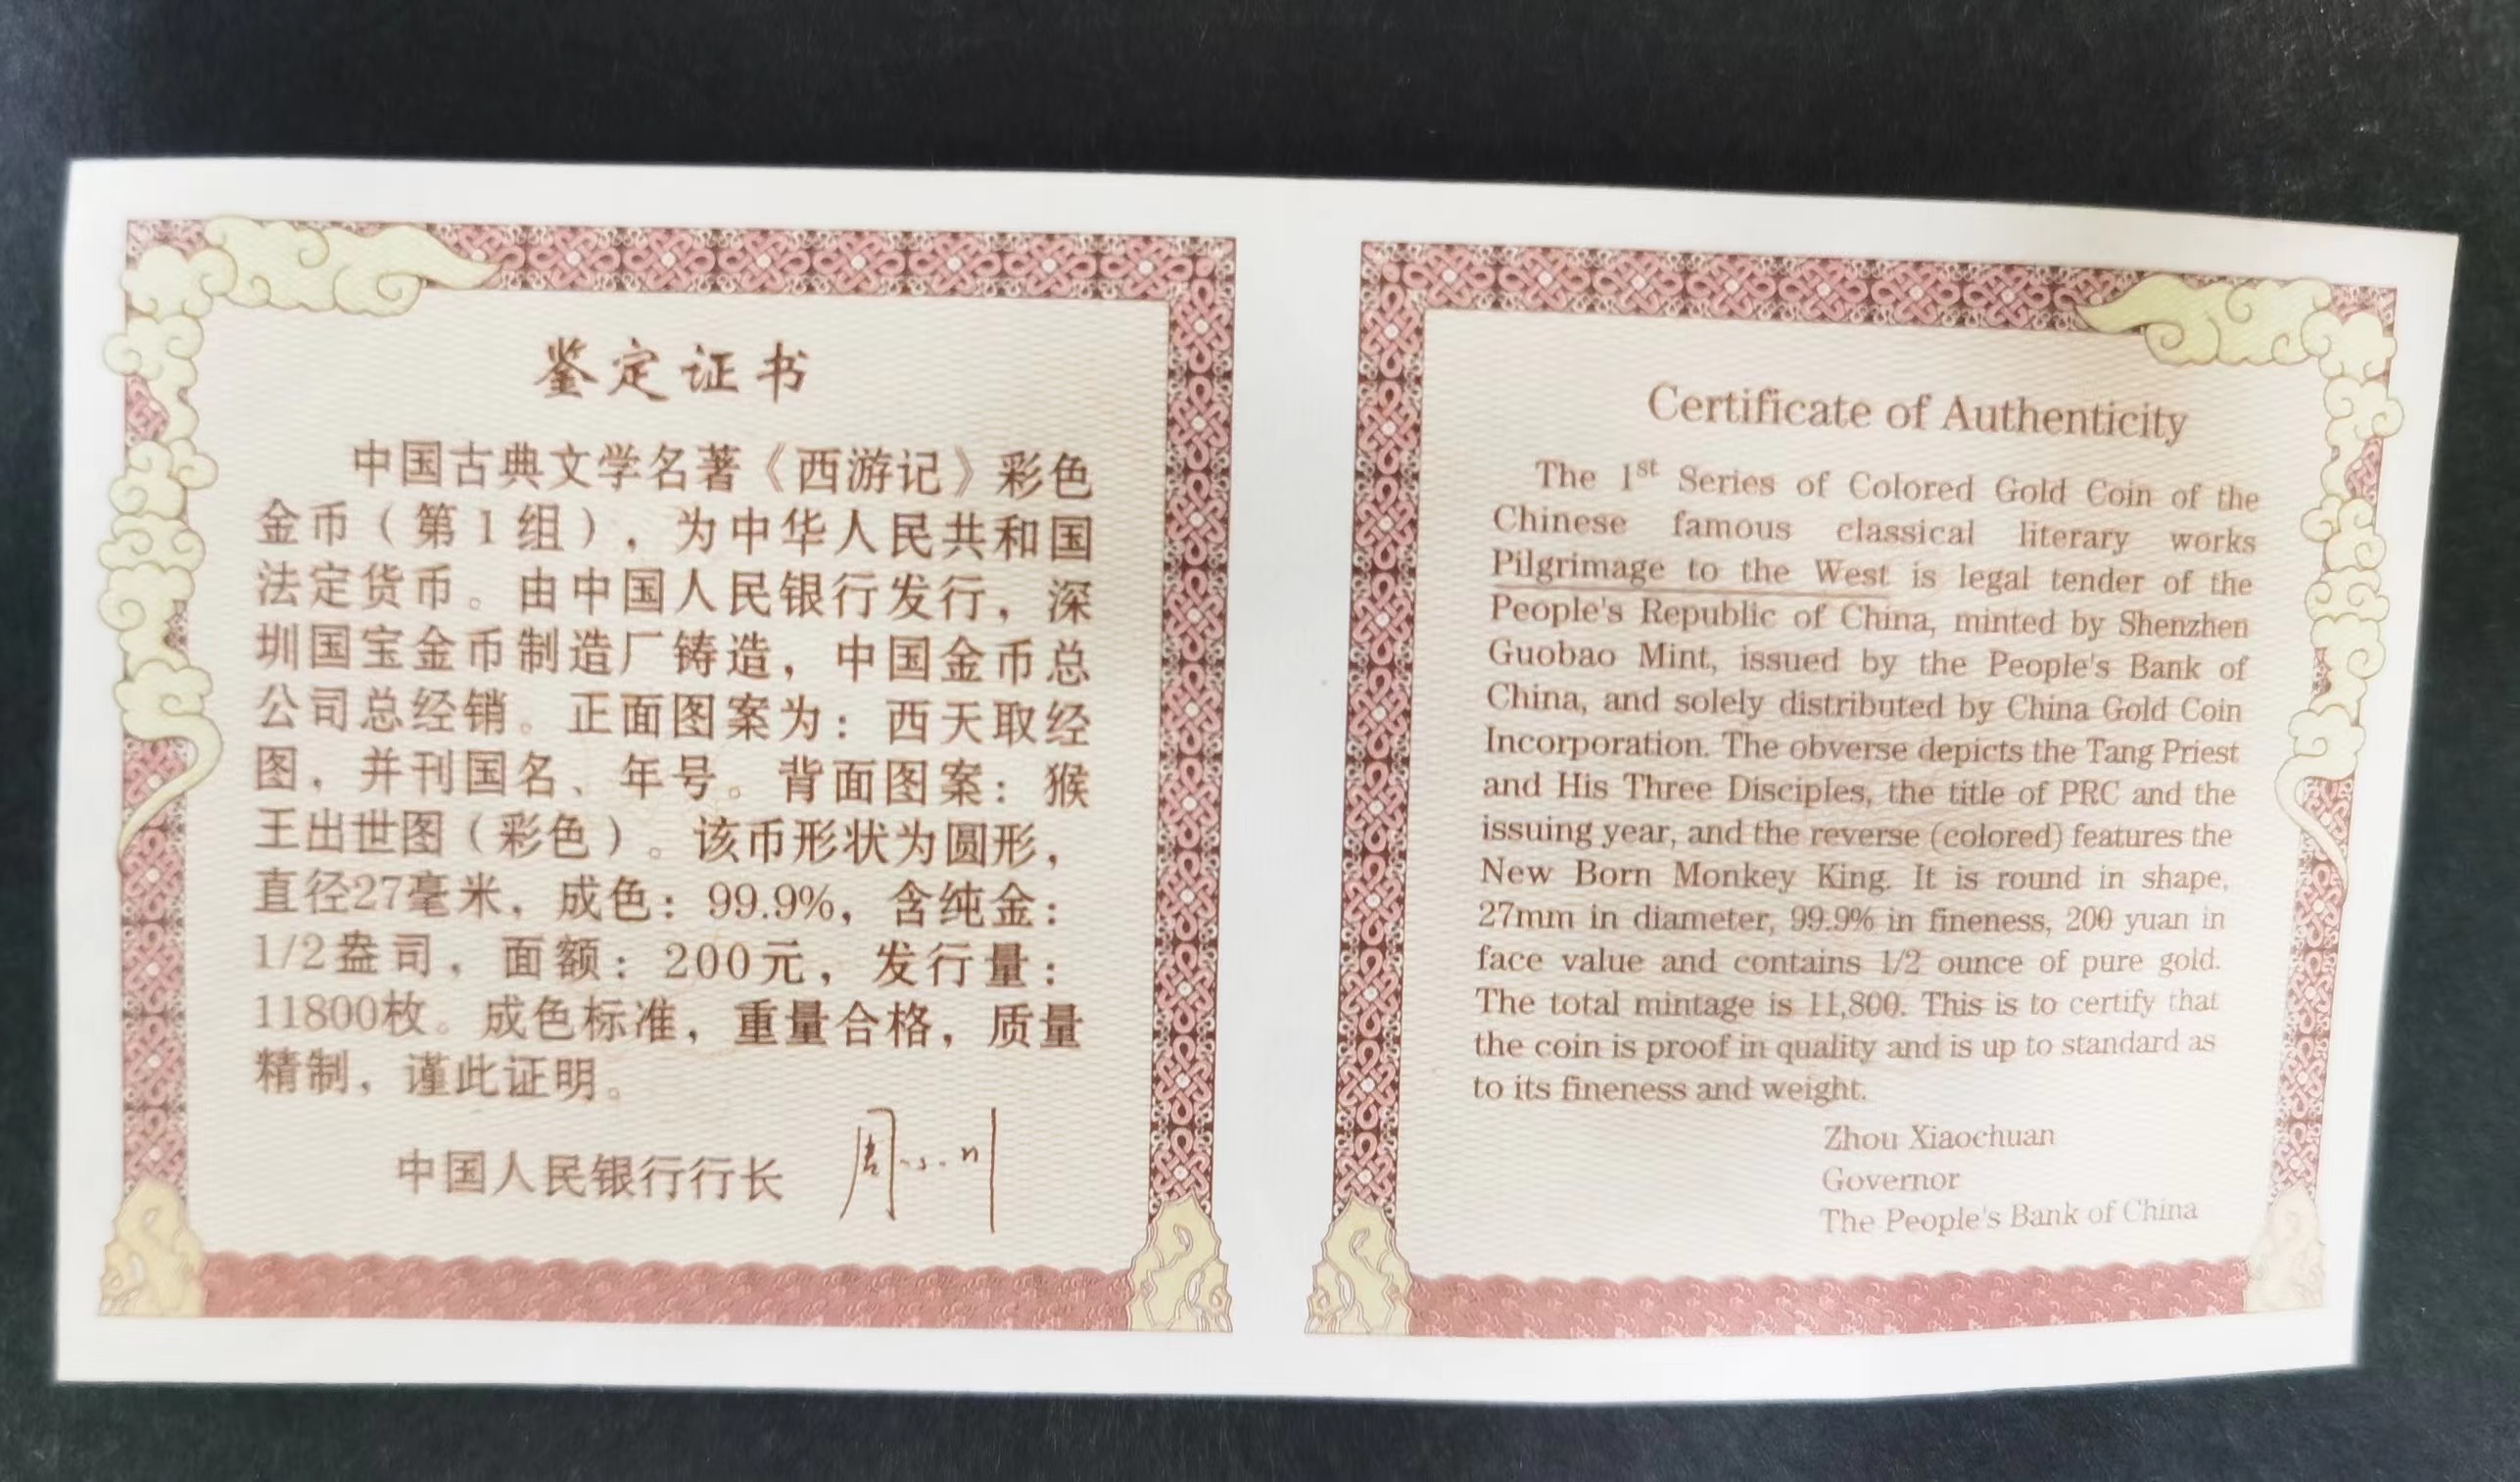 鉴定证书
中国古典文学名著《西游记》彩色
金币（第1组），为中华人民共和国
法定货币。由中国人民银行发行，深
圳国宝金币制造厂铸造，中国金币总
公司总经销。正面图案为：西天取经
图，并刊国名、年号。背面图案：猴
王出世图（彩色）。该币形状为圆形，
直径27毫米，成色：99.9%，含纯金：
1/2盎司，面额：200元，发行量：
11800枚。成色标准，重量合格，质量
精制，谨此证明。
中国人民银行行长 周小川
Certificate of Authenticity
The 1st Series of Colored Gold Coin of the
Chinese famous classical literary works
Pilgrimage to the West is legal tender of the
People's Republic of China, minted by Shenzhen
Guobao Mint, issued by the People's Bank of
China, and solely distributed by China Gold Coin
Incorporation. The obverse depicts the Tang Priest
and His Three Disciples, the title of PRC and the
issuing year, and the reverse (colored) features the
New Born Monkey King. It is round in shape,
27mm in diameter, 99.9% in fineness, 200 yuan in
face value and contains 1/2 ounce of pure gold.
The total mintage is 11,800. This is to certify that
the coin is proof in quality and is up to standard as
to its fineness and weight.
Zhou Xiaochuan
Governor
The People's Bank of China